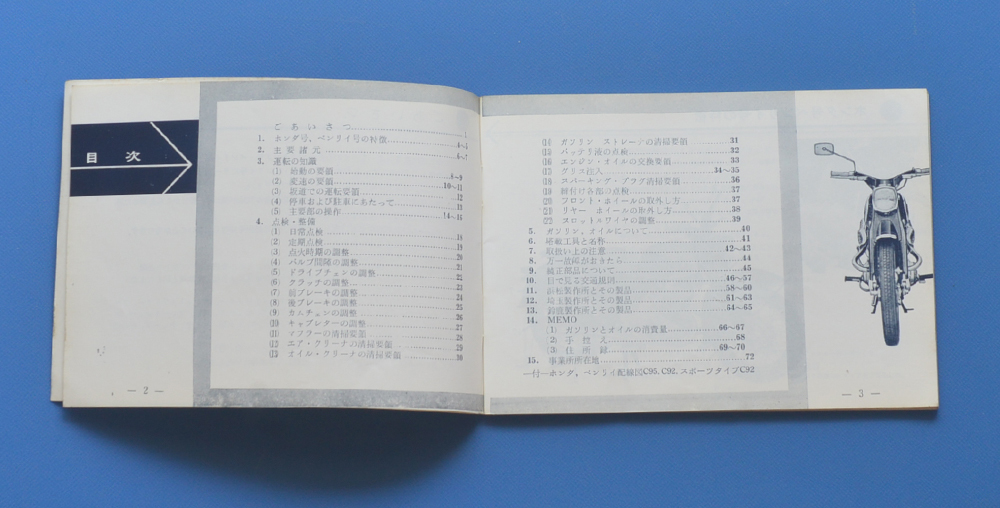 目次
ごあいさつ 1
1. ホンダ号、ベンリイ号の特徴
2. 主要諸元
3. 運転の知識
(1) 始動の要領 8~9
(2) 変速の要領 10~11
(3) 坂道での運転要領 12
(4) 停車および駐車にあたって 13
(5) 主要部の操作 14~16
4. 点検・整備
(1) 日常点検 18
(2) 定期点検 19
(3) 点火時期の調整 20
(4) バルブ間隙の調整 21
(5) ドライブチェンの調整 22
(6) クラッチの調整 23
(7) 前ブレーキの調整 24
(8) 後ブレーキの調整 25
(9) カムチェンの調整 26
(10) キャブレターの調整 27
(11) マフラーの清掃要領 28
(12) エア・クリーナの清掃要領 29
(13) オイル・クリーナの清掃要領 30
— 2 —
(14) ガソリン ストレーナの清掃要領 31
(15) バッテリ液の点検 32
(16) エンジン・オイルの交換要領 33
(17) グリス注入 34~35
(18) スパーキング・プラグ清掃要領 36
(19) 締付け各部の点検 37
(20) フロント・ホイールの取外し方 37
(21) リヤー ホイールの取外し方 38
(22) スロットルワイヤの調整 39
5. ガソリン、オイルについて 40
6. 搭載工具と名称 41
7. 取扱い上の注意 42~43
8. 万一故障がおきたら 44
9. 純正部品について 45
10. 目で見る交通規則 46~57
11. 浜松製作所とその製品 58~60
12. 埼玉製作所とその製品 61~63
13. 鈴鹿製作所とその製品 64~65
14. MEMO
(1) ガソリンとオイルの消費量 66~67
(2) 手控え 68
(3) 住所録 69~70
15. 事業所所在地 72
—付—ホンダ、ベンリイ配線図C95、C92、スポーツタイプC92
— 3 —